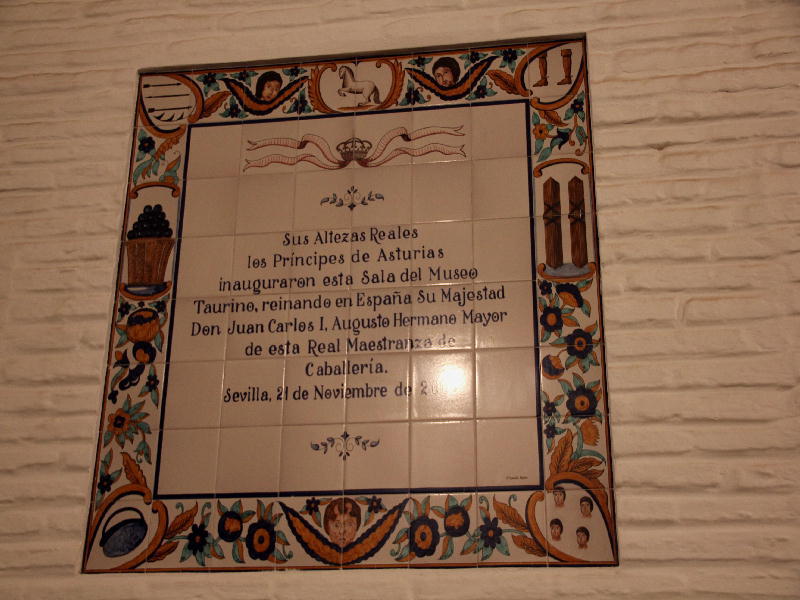 Sus Altezas Reales
los Príncipes de Asturias
inauguraron esta Sala del Museo
Taurino, reinando en España Su Majestad
Don Juan Carlos I, Augusto Hermano Mayor
de esta Real Maestranza de
Caballería.
Sevilla, 21 de Noviembre de